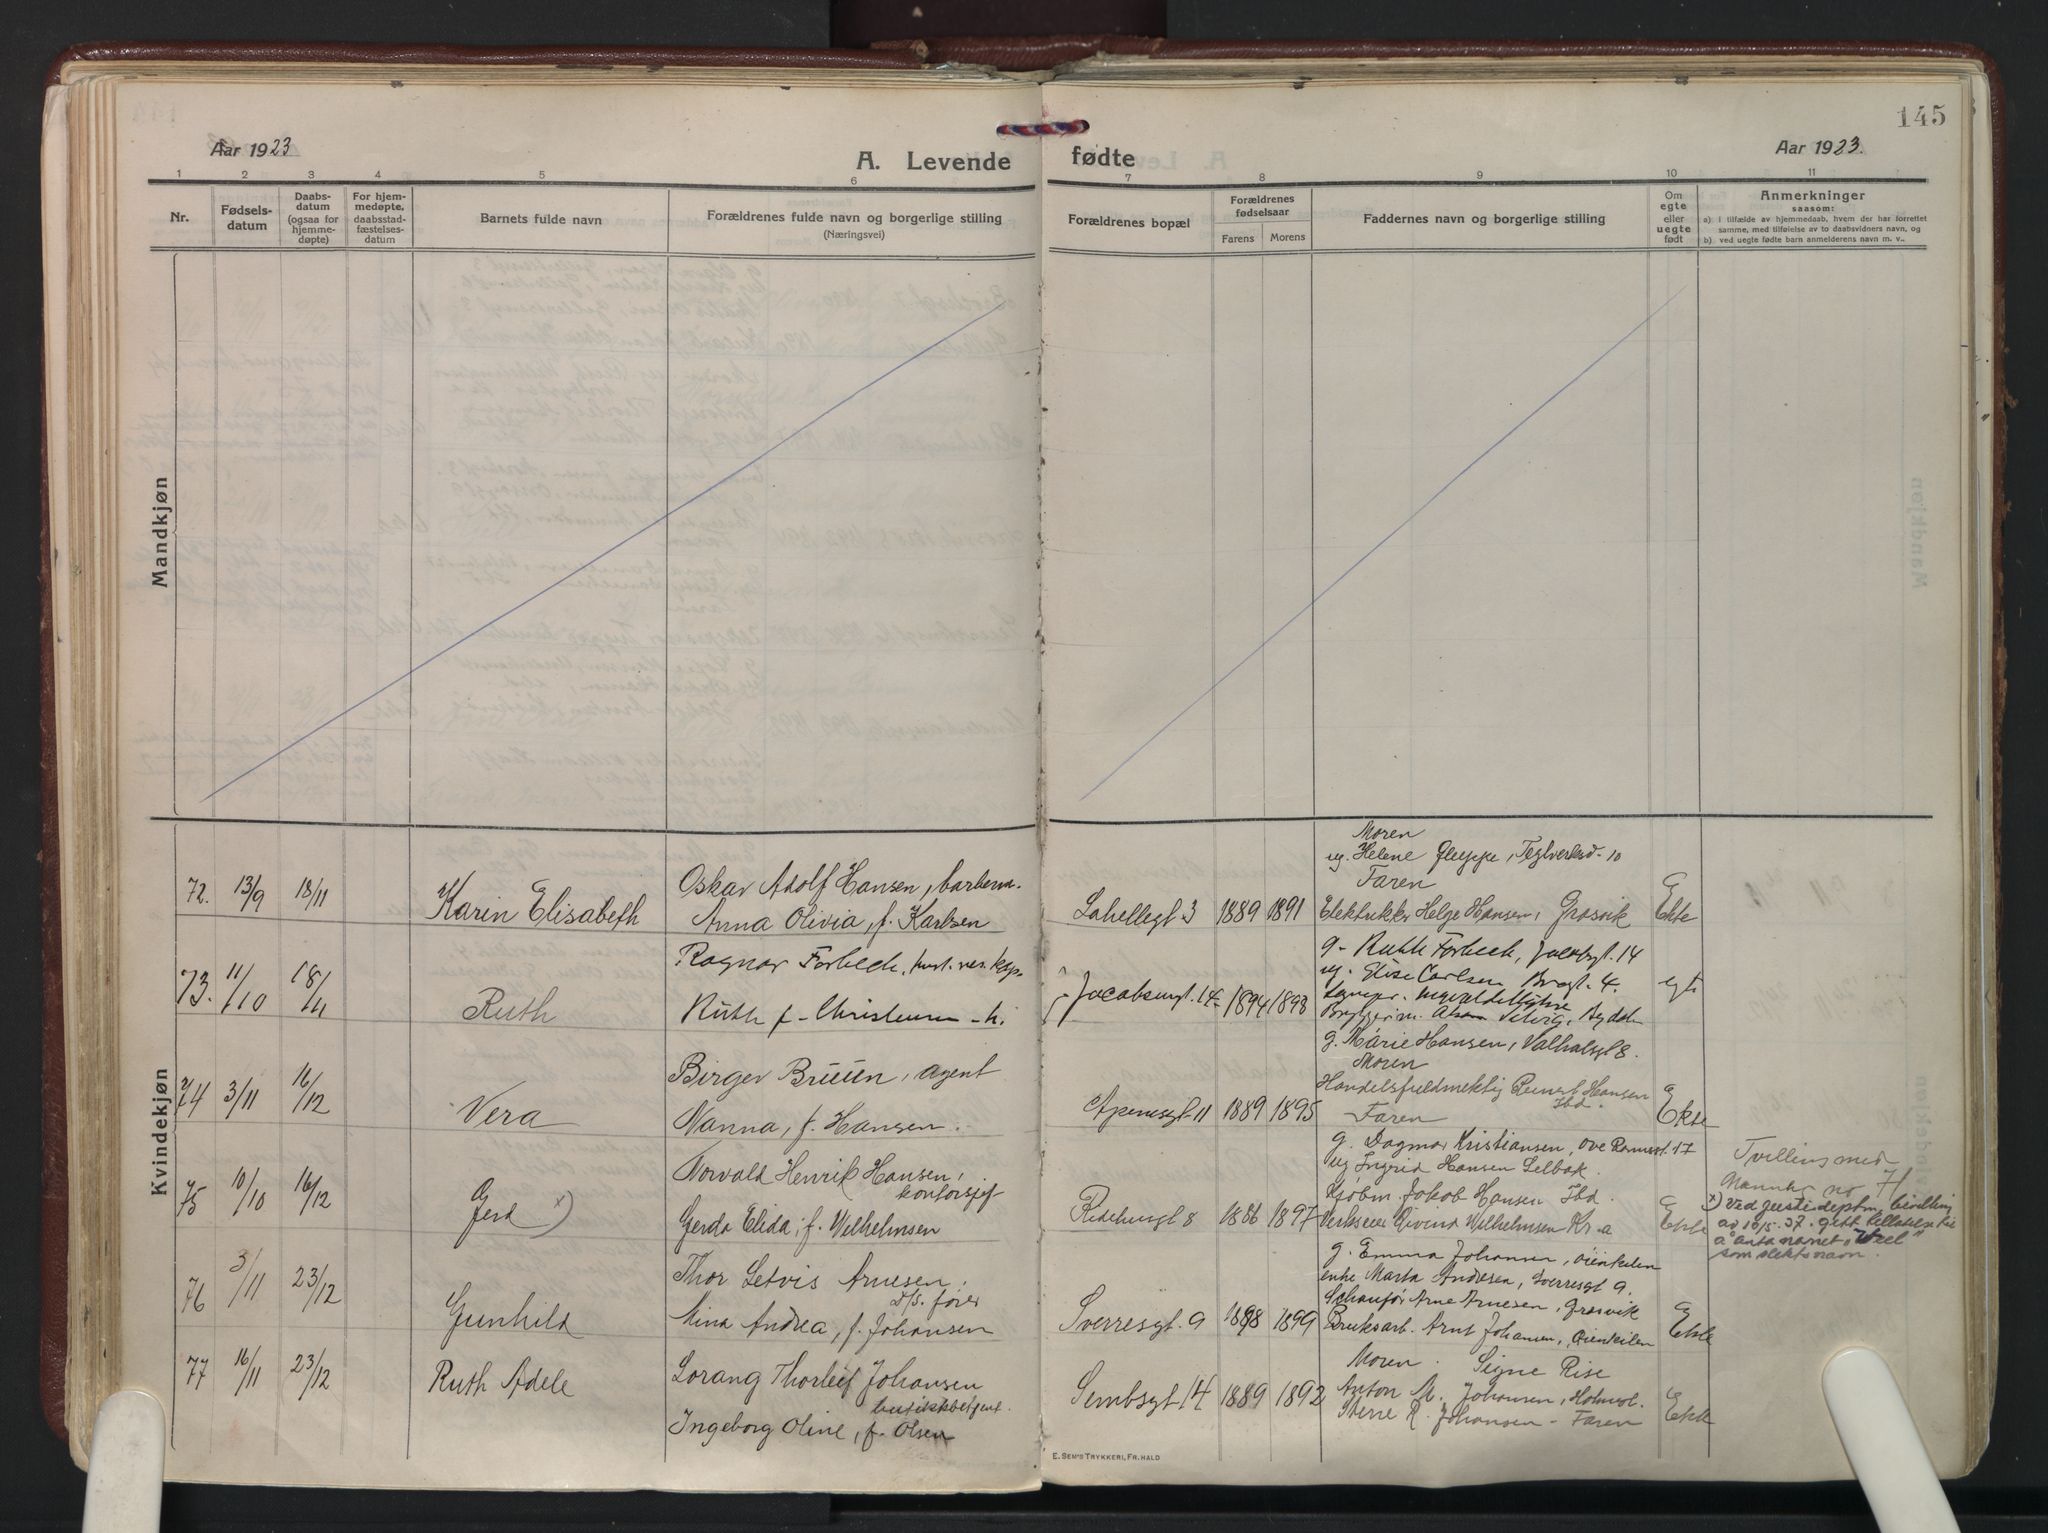 Aar 1923
A. Levende
fødte
Aar 1923.
145
1 2 3 4 5 6 7 8 9 10 11
Nr.
Fødsels-
datum
Daabs-
datum
(ogsaa for
hjemme-
døpte)
For hjem-
medøpte,
daabsstad-
fæstelses-
datum
Barnets fulde navn
Forældrenes fulde navn og borgerlige stilling
(Næringsvei)
Forældrenes bopæl
Forældrenes
fødselsaar
Farens
Morens
Faddernes navn og borgerlige stilling
Om
egte
eller
uegte
født
Anmerkninger
saasom:
a) i tilfælde av hjemmedaab, hvem der har forrettet
samme, med tilføielse av to daabsvidners navn, og
b) ved uegte fødte barn anmelderens navn m. v..
Mandkjøn
Kvindekjøn
72. 13/9 18/11
Karin Elisabeth
Oskar Adolf Hansen, barberm.
Anna Olivia, f. Karlsen
Lahellegt 3 1889 1891
Moren
ug. Helene Gleppe, Teglverksd. 10
Faren
Elektrikker Helge Hansen, Grosvik
Ekte
73. 11/10 18/11
Ruth
Ragnar Forbech,
Ruth f.
Jacobsengt. 14 1894 1898
g. Ruth Forbech, Jacobsgt. 14
ug. Elise Carlsen Brogt. 4.
egte
74 3/11 16/12
Vera
Birger Bruun, agent
Nanna, f. Hansen.
Apenesgt 11 1889 1895
g. Marie Hansen, Valhalsgt 8.
Moren
Handelsfuldmektig Hansen
Ibd.
Faren
Ekte
75 10/10 16/12
Gerd x)
Torvald Henrik Hansen,
kontorsjef
Gerda Elida, f. Wilhelmsen
Ridehusgt 8 1886 1897
g. Dagmar Kristiansen, Ove Ramsgt. 17
ug Ingrid Hansen Selbak.
Kjøbm. Jakob Hansen Ibd.
Verkseier Øivind Wilhelmsen Kr.a
Ekte
Tvilling med
Mannkr no 71
x) Ved justisdeptm. bevilling
av 10/5.37. gitt tillatelse til
å anta navnet
som slektsnavn.
76 3/11 23/12
Gunhild
Thor Letvis Arnesen,
D/S. fører
Mina Andrea, f. Johansen
Sverresgt. 9 1898 1899
g. Emma Johansen, Øienkilen
enke Marta Andresen, Sverresgt 9.
Schaufør Arne Arnesen, Grosvik
Bruksarb. Arnt Johansen, Øienkilen
Ekte
77 16/11 23/12
Ruth Adele
Lorang Thorleif Johansen
butikkbetjent.
Ingeborg Oline, f. Olsen
Sembsgt 14 1889 1892
Moren. Signe Rise
Anton M. Johansen, Holmsl.
R. Johansen - Faren
Ekte
E. Sem's Trykkeri, Fr.hald